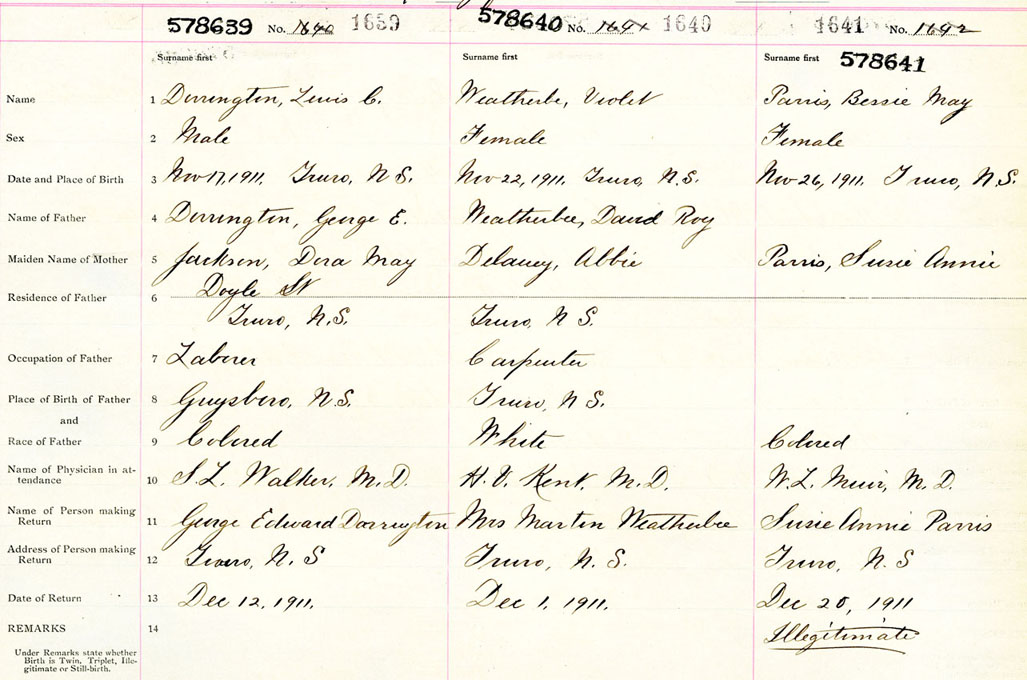 578639 No. 1640 1639 578640 No. 1691 1640 1641 No. 1692
Surname first Surname first Surname first 578641
Name 1 Dorrington, Lewis C. Weatherbe, Violet Parris, Bessie May
Sex 2 Male Female Female
Date and Place of Birth 3 Nov 17, 1911, Truro, N S. Nov 22, 1911, Truro, N.S. Nov 26, 1911, Truro, N.S.
Name of Father 4 Dorrington, George E. Weatherbee, David Roy
Maiden Name of Mother 5 Jackson, Dora May Delaney, Abbie Parris, Susie Annie
Residence of Father 6 Doyle St
Truro, N.S. Truro, N S.
Occupation of Father 7 Laborer Carpenter
Place of Birth of Father 8 Guysboro, N.S. Truro, N S.
and
Race of Father 9 Colored White Colored
Name of Physician in at-
tendance 10 S. L. Walker, M.D. H. V. Kent, M.D. W. L. Muir, M.D.
Name of Person making
Return 11 George Edward Dorrington Mrs Marten Weatherbee Susie Annie Parris
Address of Person making
Return 12 Truro, N. S Truro, N. S. Truro, N. S
Date of Return 13 Dec 12, 1911. Dec 1, 1911. Dec 20, 1911
REMARKS 14 Illegitimate
Under Remarks state whether
Birth is Twin, Triplet, Ille-
gitimate or Still-birth.